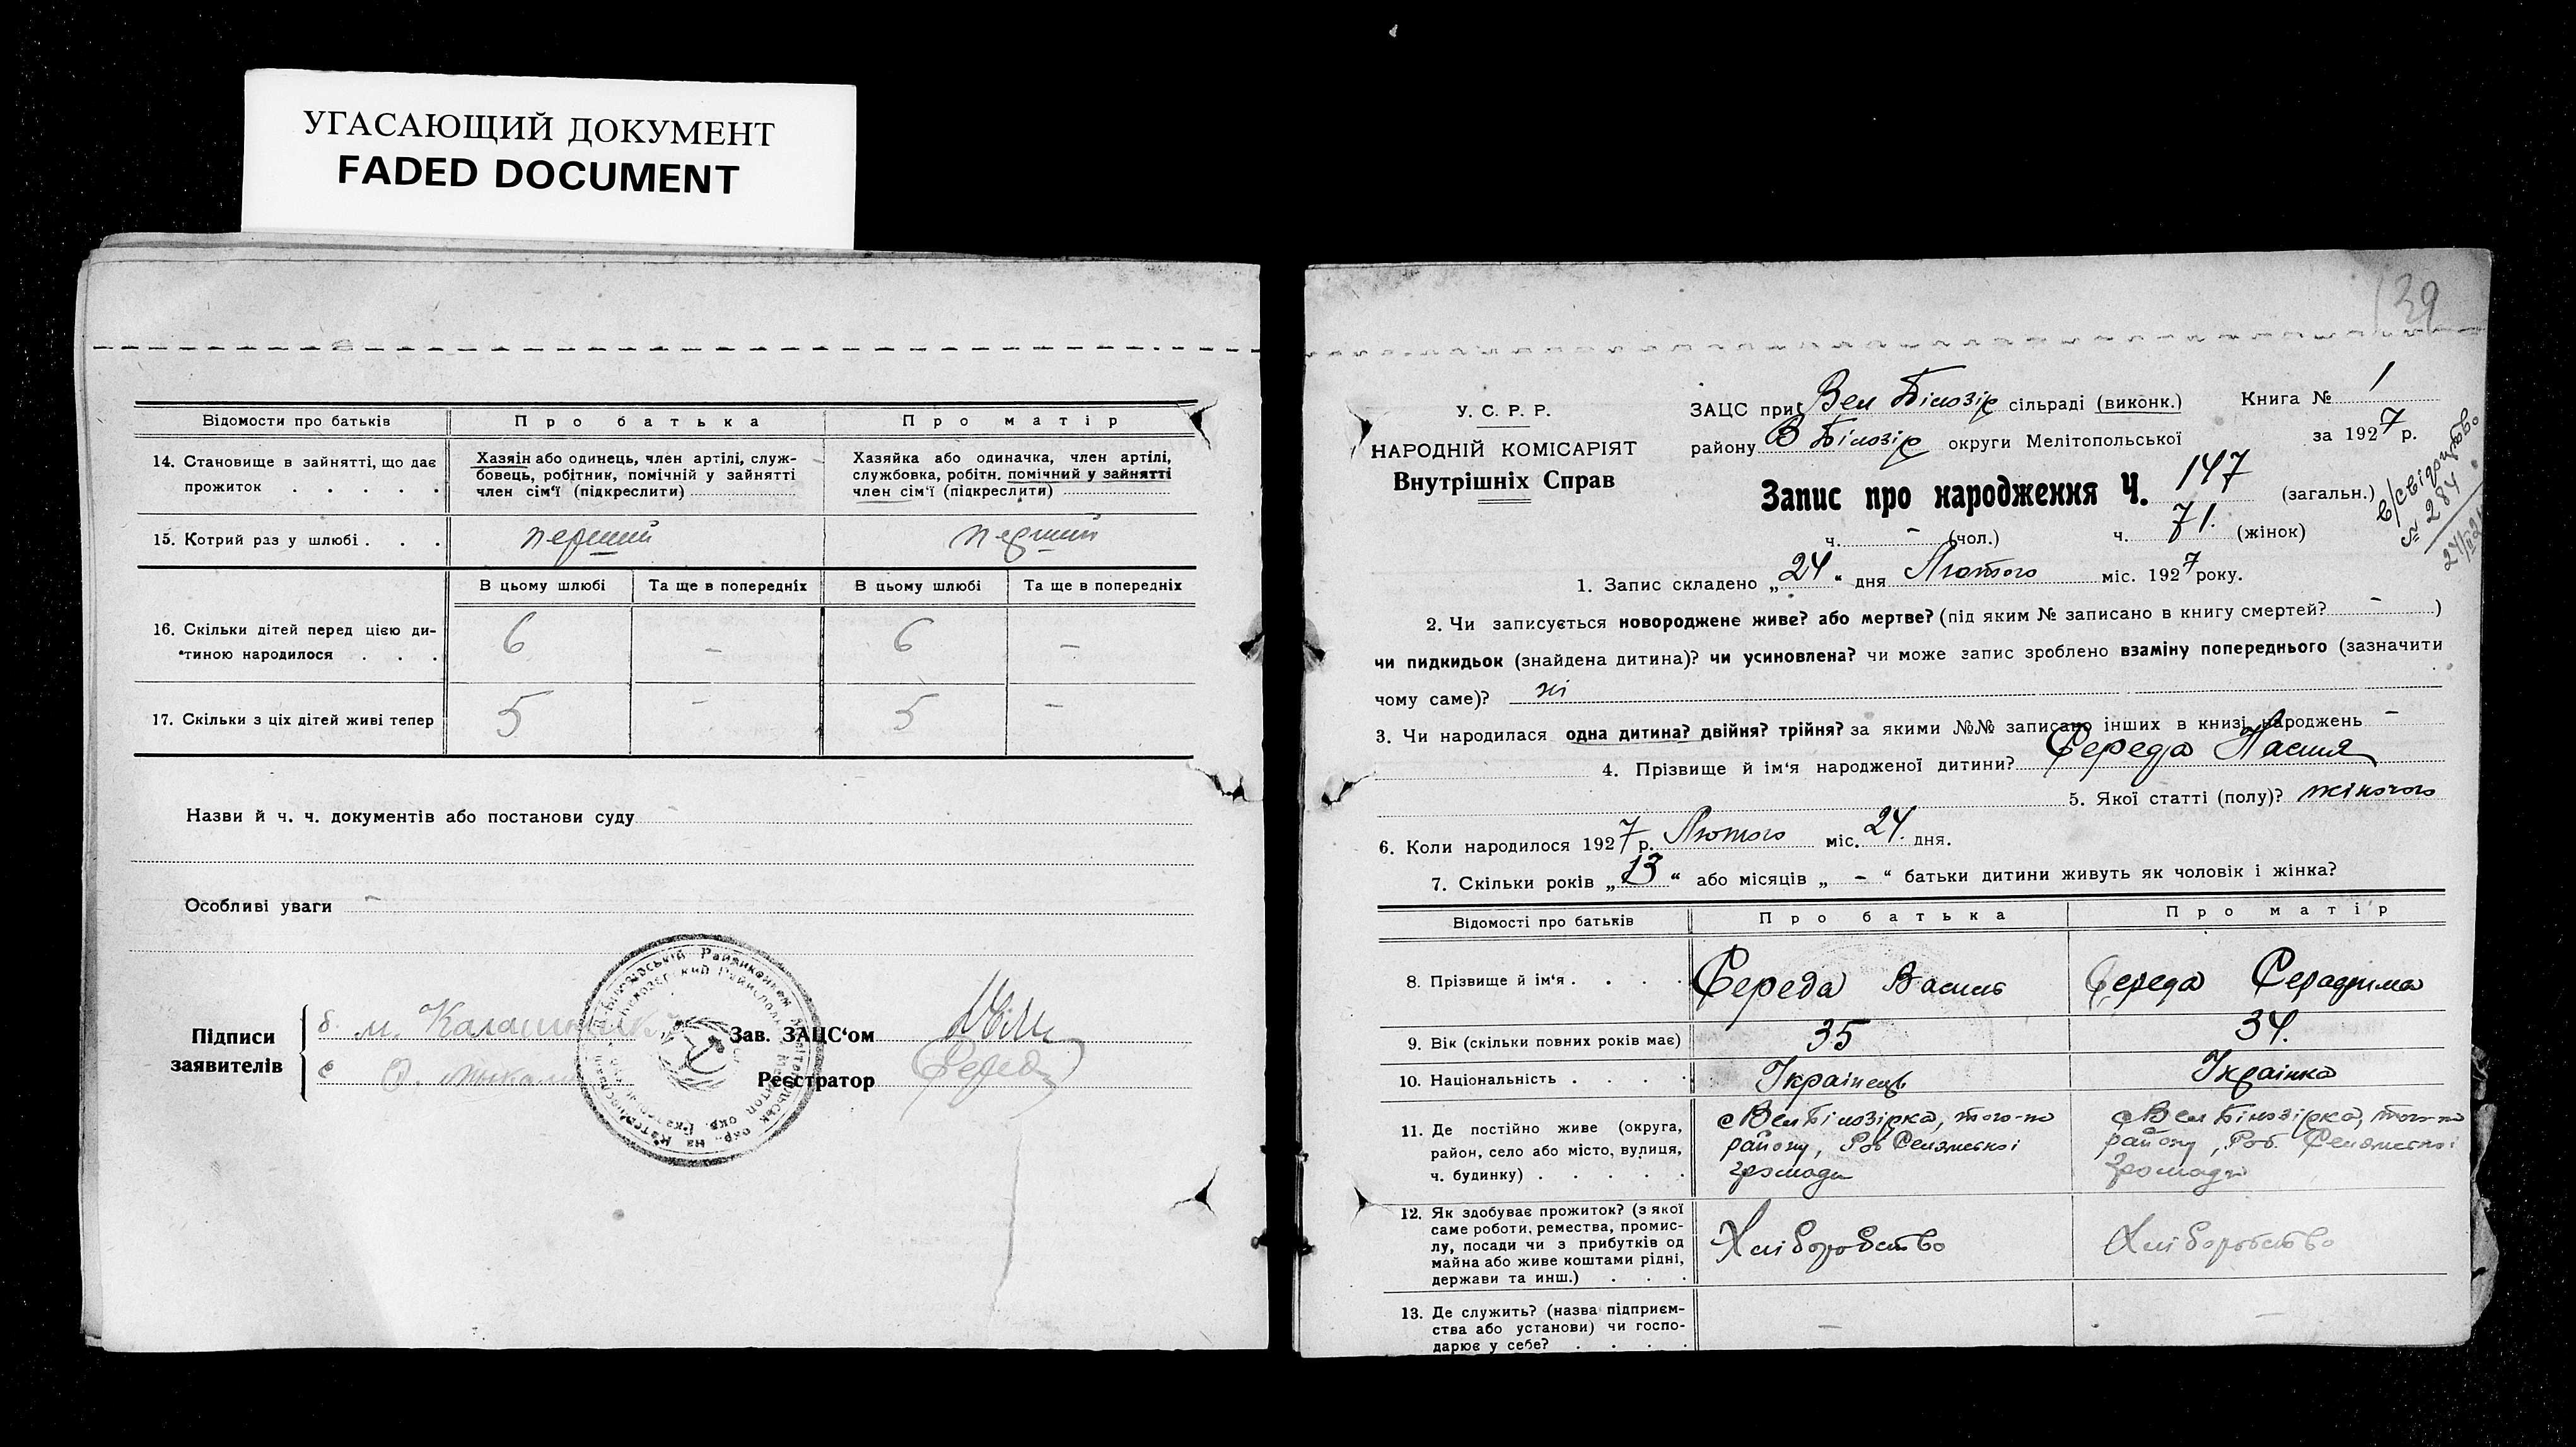 УГАСАЮЩИЙ ДОКУМЕНТ
FADED DOCUMENT
Відомости про батьків
Про батька
Про матір
14. Становище в зайнятті, що дає прожиток . . . . .
Хазяін або одинець, член артілі, служ-
бовець, робітник, помічній у зайнятті
член сім'ї (підкреслити)
Хазяйка або одиначка, член артілі,
службовка, робітн. помічний у зайнятті
член сім'ї (підкреслити)
15. Котрий раз у шлюбі . . .
перший
перший
В цьому шлюбі
Та ще в попередніх
В цьому шлюбі
Та ще в попередніх
16. Скільки дітей перед цією ди-
тиною народилося . . .
6
–
6
–
17. Скільки з ціх дітей живі тепер
5
–
5
–
Назви й ч. ч. документів або постанови суду
Особливі уваги –
Підписи
заявителів
б. м.
Зав. ЗАЦС'ом
Реєстратор Серед
139
У. С. Р. Р.
НАРОДНІЙ КОМІСАРІЯТ
Внутрішніх Справ
ЗАЦС при Вел Білозір сільраді (виконк.)
Книга № 1
району В Білозір округи Мелітопольської
за 1927 р.
Запис про народження Ч. 147 (загальн.)
№ 284
ч. – (чол.) ч. 71. (жінок)
1. Запис складено „24“ дня Лютого міс. 1927 року.
2. Чи записується новороджене живе? або мертве? (під яким № записано в книгу смертей? – )
чи пидкидьок (знайдена дитина)? чи усиновлена? чи може запис зроблено взаміну попереднього (зазначити
чому саме)? ні
3. Чи народилася одна дитина? двійня? трійня? за якими №№ записано інших в книзі народжень –
4. Прізвище й ім'я народженої дитини? Середа Настя
5. Якої статті (полу)? жіночого
6. Коли народилося 1927 р. Лютого міс. 24. дня.
7. Скільки років „13“ або місяців „ – “ батьки дитини живуть як чоловік і жінка?
Відомості про батьків
Про батька
Про матір
8. Прізвище й ім'я . . . .
Середа Василь
Середа Серафима
9. Вік (скільки повних років має)
35
34.
10. Національність . . . .
Українець
Українка
11. Де постійно живе (округа,
район, село або місто, вулиця,
ч. будинку) . . . . .
с Вел Білозірка, того-ж
району, Роб Селянської
громади
с Вел Білозірка, того-ж
району, Роб. Селянської
громади
12. Як здобуває прожиток? (з якої
саме роботи, ремества, промис-
лу, посади чи з прибутків од
майна або живе коштами рідні,
держави та инш.) . . .
Хліборобство
Хліборобство
13. Де служить? (назва підприєм-
ства або установи) чи госпо-
дарює у себе? . . . .
–
–